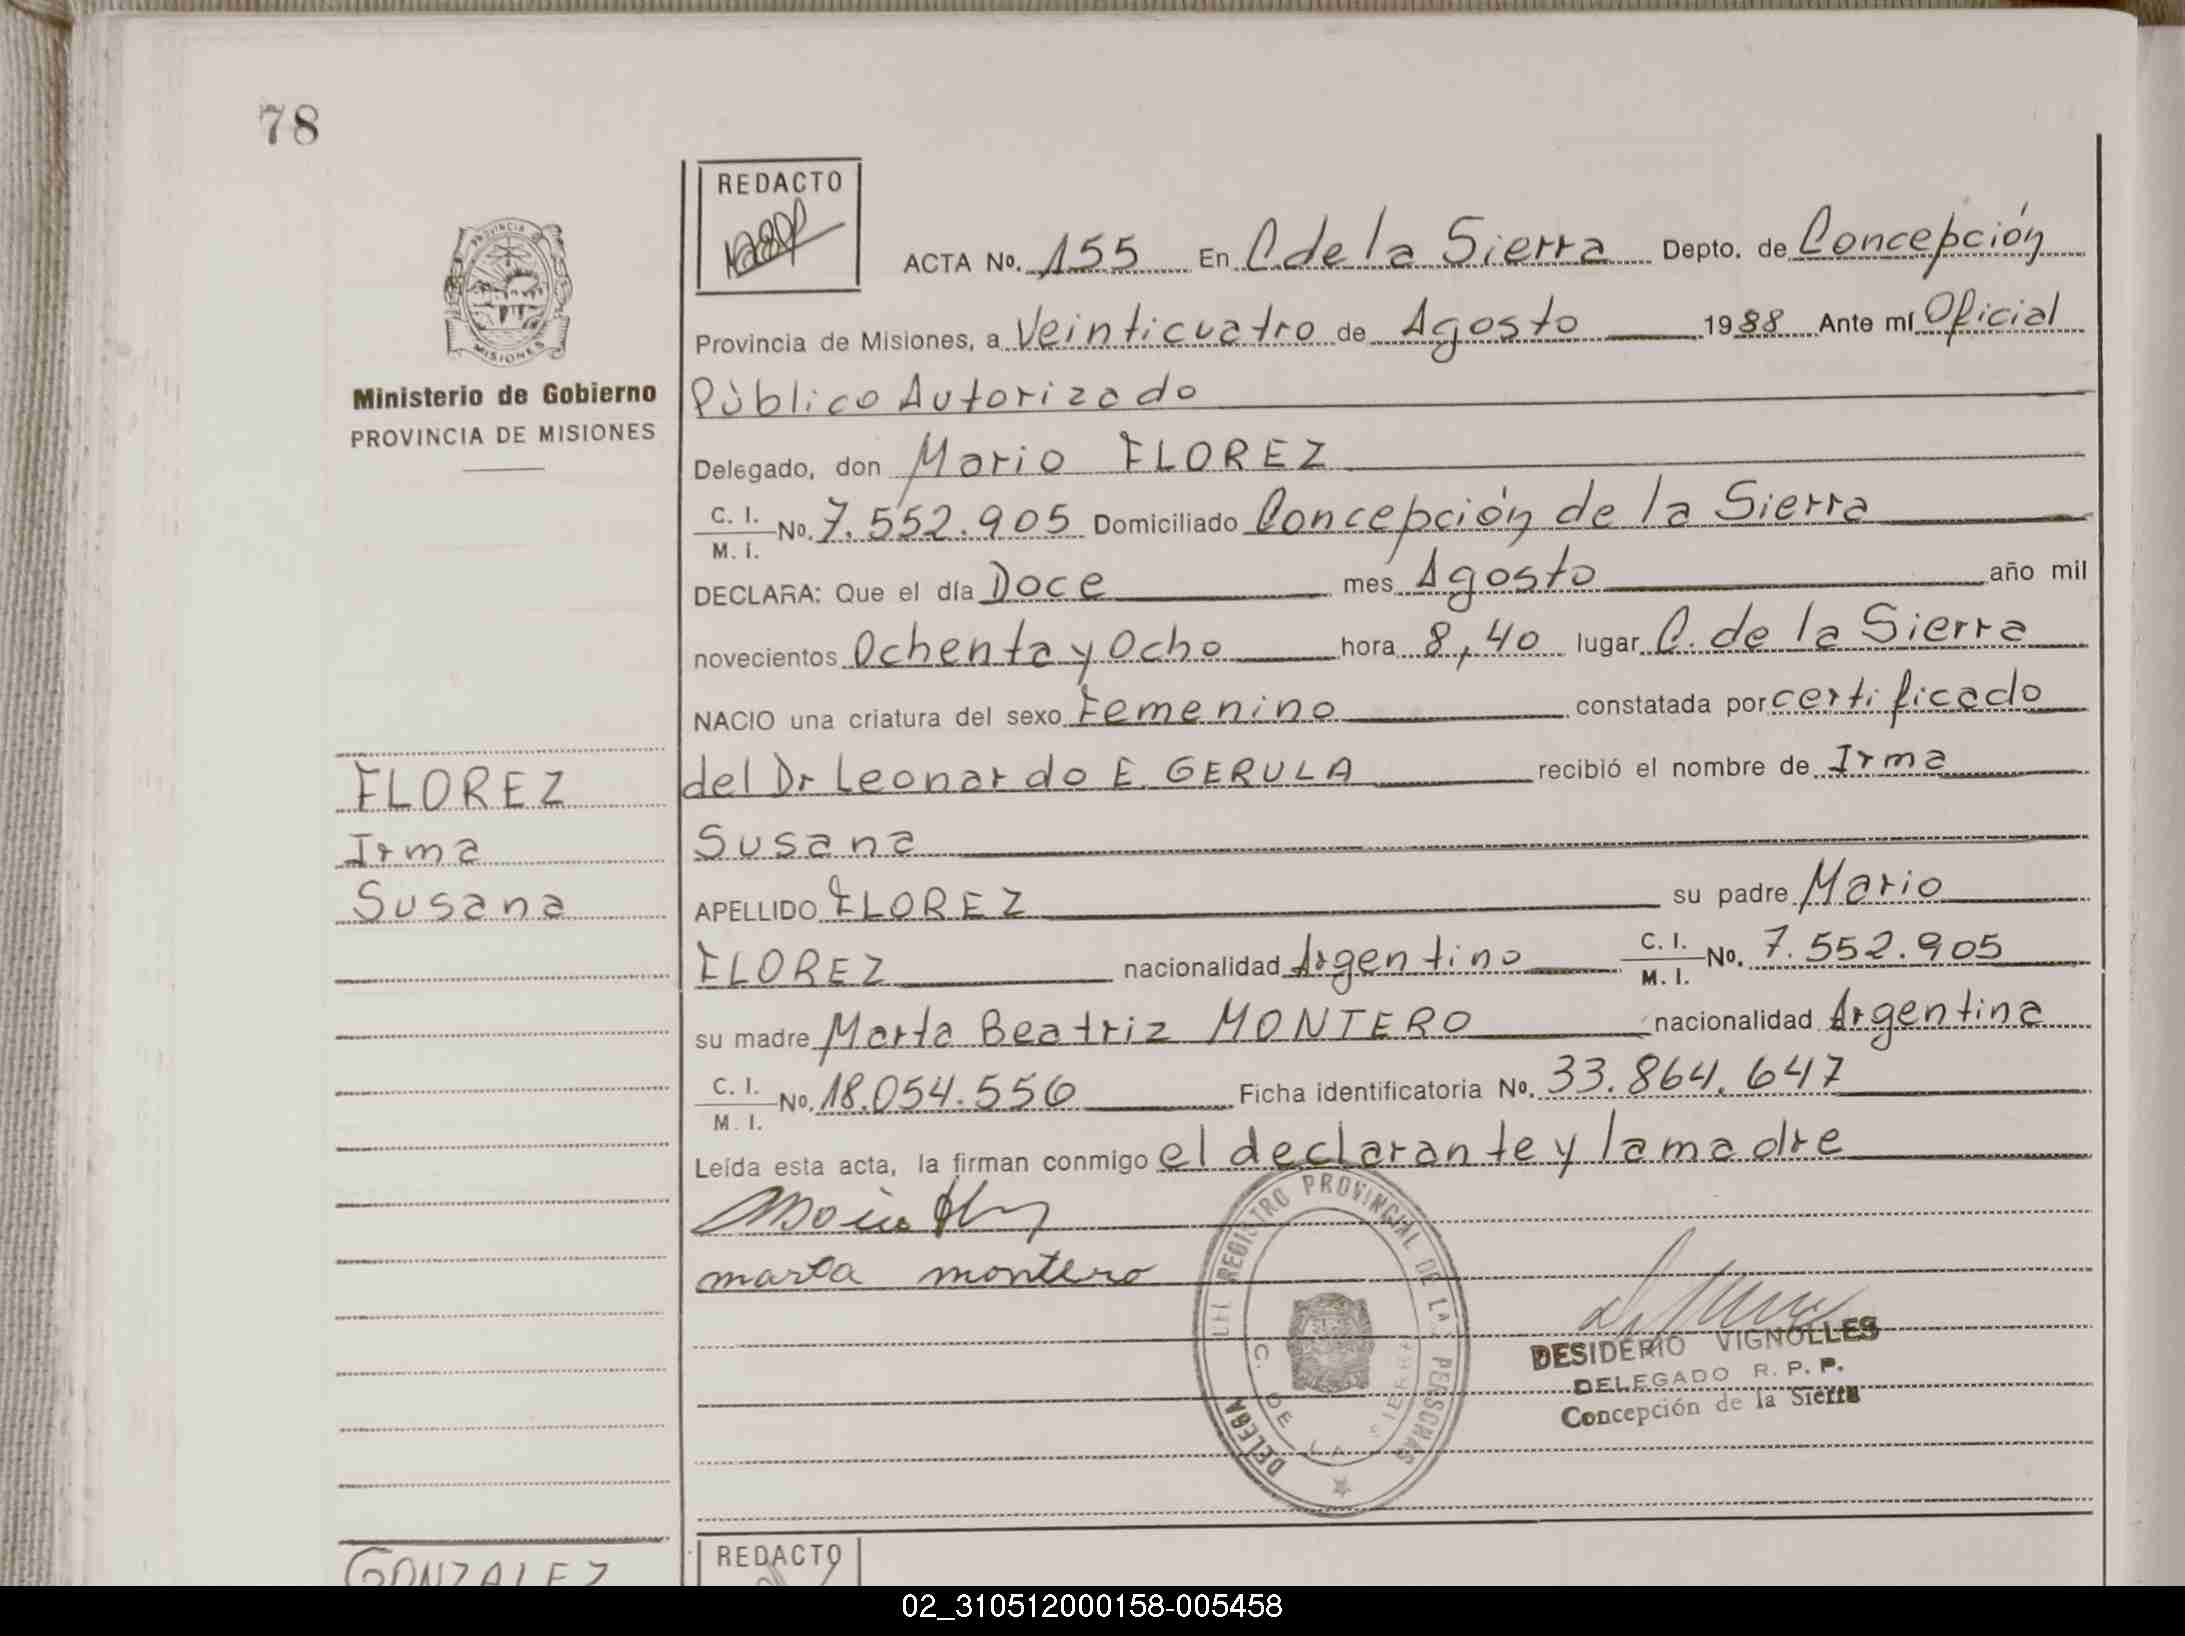 78
REDACTO
ACTA No. 155 En C de la Sierra Depto. de Concepción
Provincia de Misiones, a Veinticuatro de Agosto 1988 Ante mí Oficial
Público Autorizado
Delegado, don Mario FLOREZ
C. I. / M. I. No. 7.552.905 Domiciliado Concepción de la Sierra
DECLARA: Que el día Doce mes Agosto año mil
novecientos Ochenta y Ocho hora 8,40 lugar C. de la Sierra
NACIO una criatura del sexo Femenino constatada por certificado
del Dr Leonardo E. GERULA recibió el nombre de Irma
Susana
APELLIDO FLOREZ su padre Mario
FLOREZ nacionalidad Argentino C. I. / M. I. No. 7.552.905
su madre Marta Beatriz MONTERO nacionalidad Argentina
C. I. / M. I. No. 18.054.556 Ficha identificatoria No. 33.864.647
Leída esta acta, la firman conmigo el declarante y la madre
marta montero
PROVINCIA
MISIONES
Ministerio de Gobierno
PROVINCIA DE MISIONES
FLOREZ
Irma
Susana
REGISTRO PROVINCIAL DE LA PERSONAS
C. DE LA SIERRA
DESIDERIO VIGNOLLES
DELEGADO R. P. P.
Concepción de la Sierra
GONZALEZ
REDACTO
02_310512000158-005458